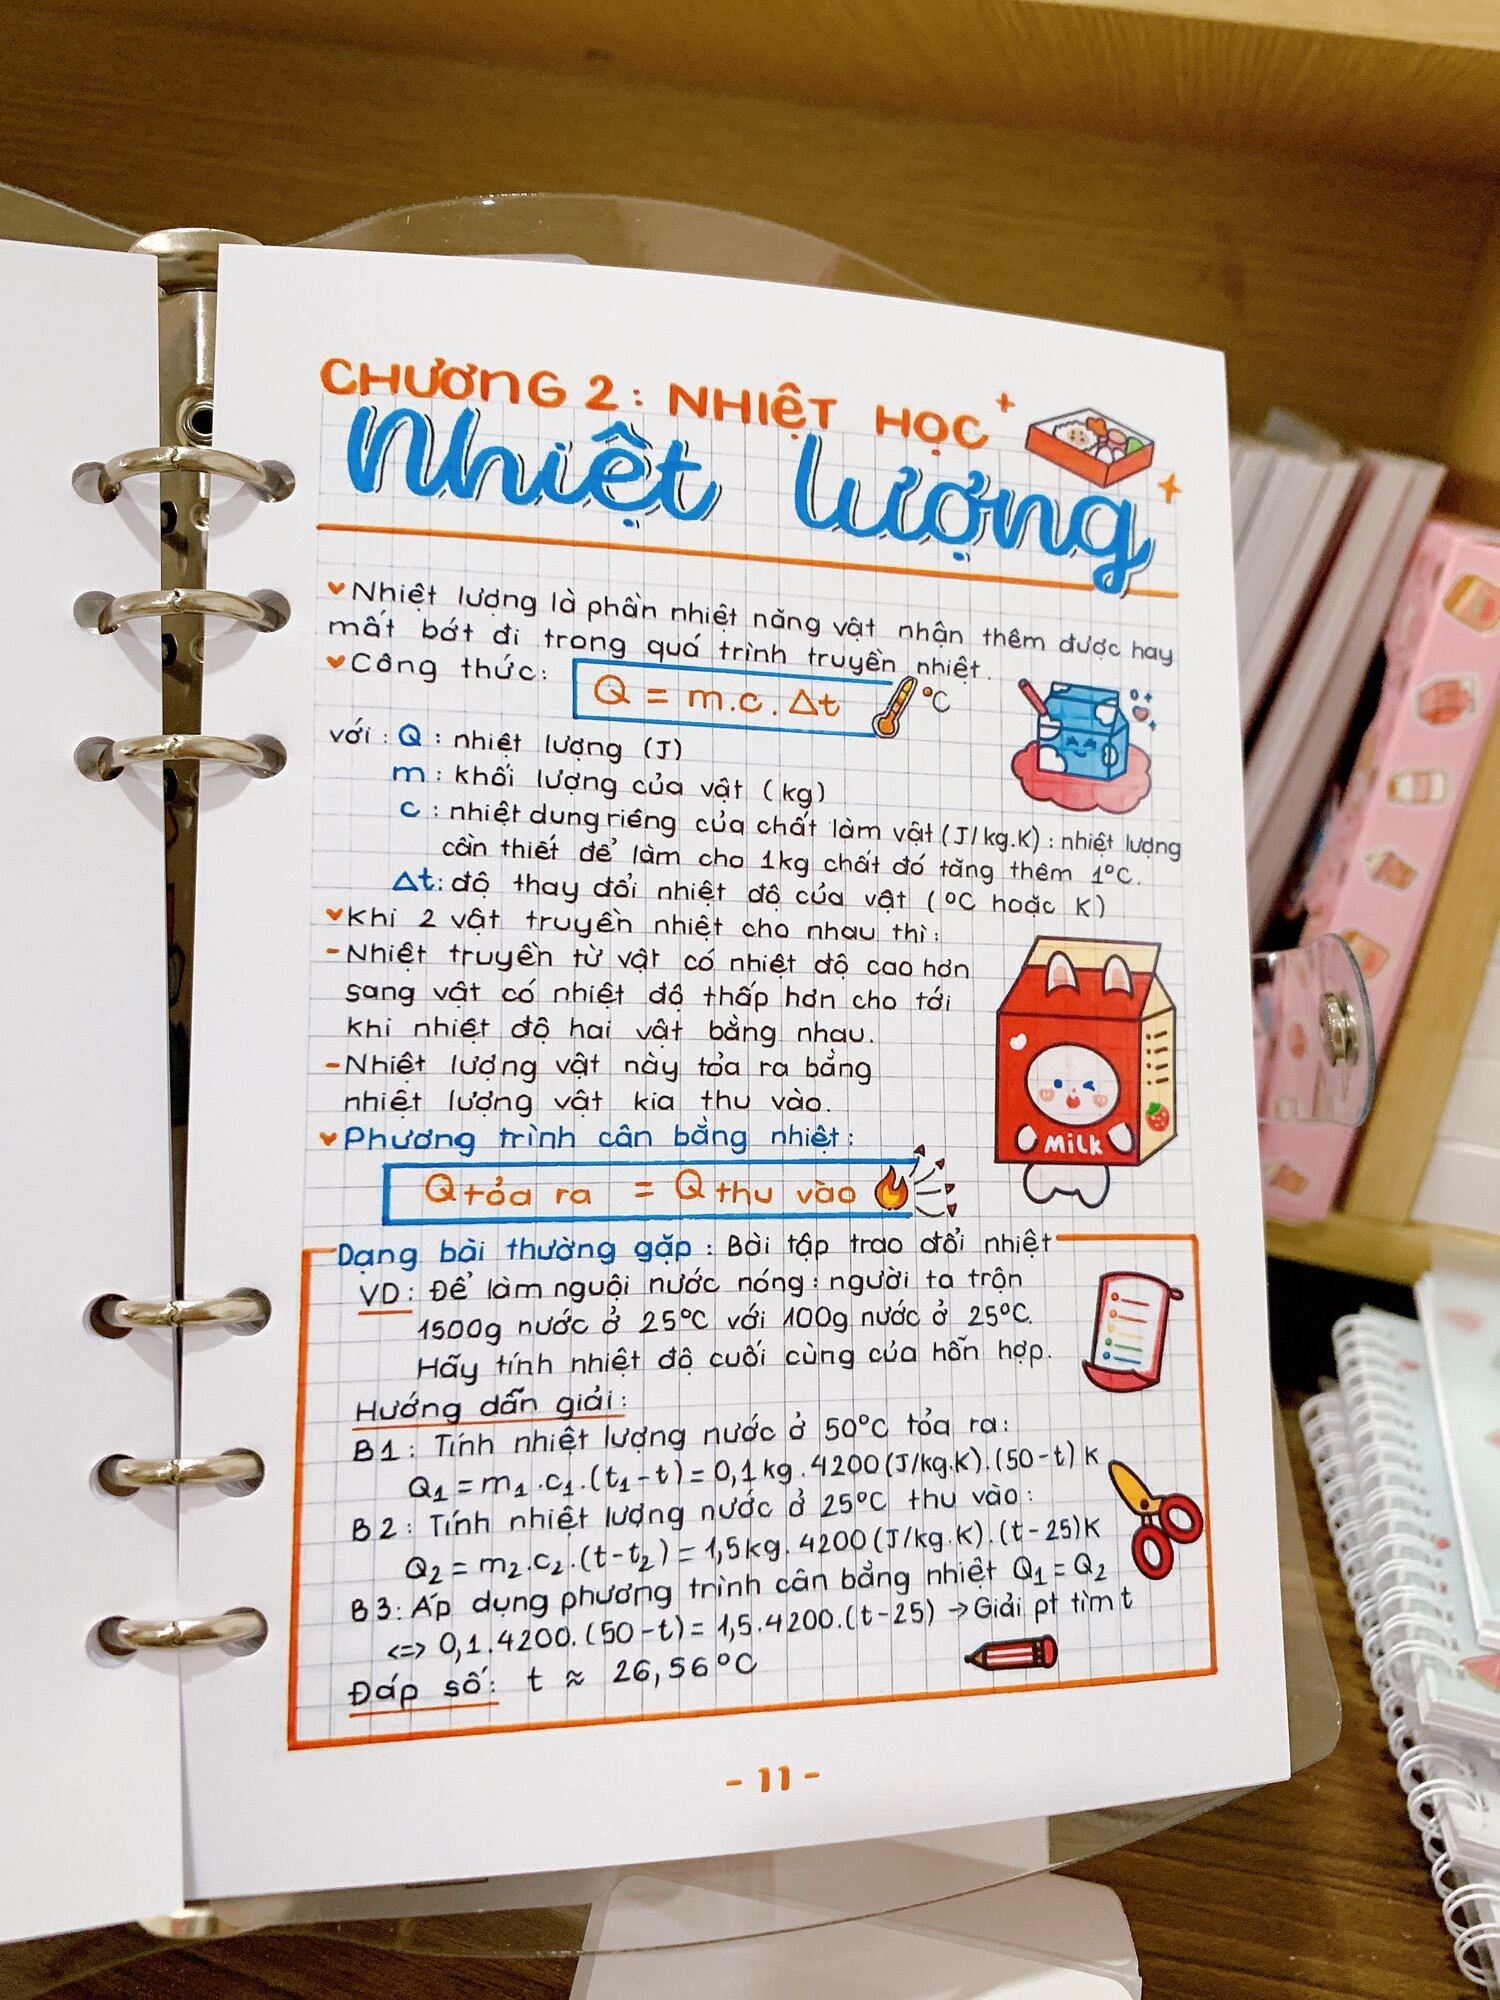 CHƯƠNG 2: NHIỆT HỌC
Nhiệt lượng
Nhiệt lượng là phần nhiệt năng vật nhận thêm được hay
mất bớt đi trong quá trình truyền nhiệt.
Công thức: Q = m.c.Δt °C
với: Q: nhiệt lượng (J)
m: khối lượng của vật (kg)
c: nhiệt dung riêng của chất làm vật (J/kg.K): nhiệt lượng
cần thiết để làm cho 1kg chất đó tăng thêm 1°C.
Δt: độ thay đổi nhiệt độ của vật (°C hoặc K)
Khi 2 vật truyền nhiệt cho nhau thì:
- Nhiệt truyền từ vật có nhiệt độ cao hơn
sang vật có nhiệt độ thấp hơn cho tới
khi nhiệt độ hai vật bằng nhau.
- Nhiệt lượng vật này tỏa ra bằng
nhiệt lượng vật kia thu vào.
MiLK
Phương trình cân bằng nhiệt:
Q tỏa ra = Q thu vào
Dạng bài thường gặp: Bài tập trao đổi nhiệt
VD: Để làm nguội nước nóng: người ta trộn
1500g nước ở 25°C với 100g nước ở 25°C.
Hãy tính nhiệt độ cuối cùng của hỗn hợp.
Hướng dẫn giải:
B1: Tính nhiệt lượng nước ở 50°C tỏa ra:
Q₁ = m₁.c₁.(t₁-t) = 0,1kg.4200(J/kg.K).(50-t)K
B2: Tính nhiệt lượng nước ở 25°C thu vào:
Q₂ = m₂.c₂.(t-t₂) = 1,5kg.4200(J/kg.K).(t-25)K
B3: Áp dụng phương trình cân bằng nhiệt Q₁ = Q₂
<=> 0,1.4200.(50-t) = 1,5.4200.(t-25) → Giải pt tìm t
Đáp số: t ≈ 26,56°C
- 11 -